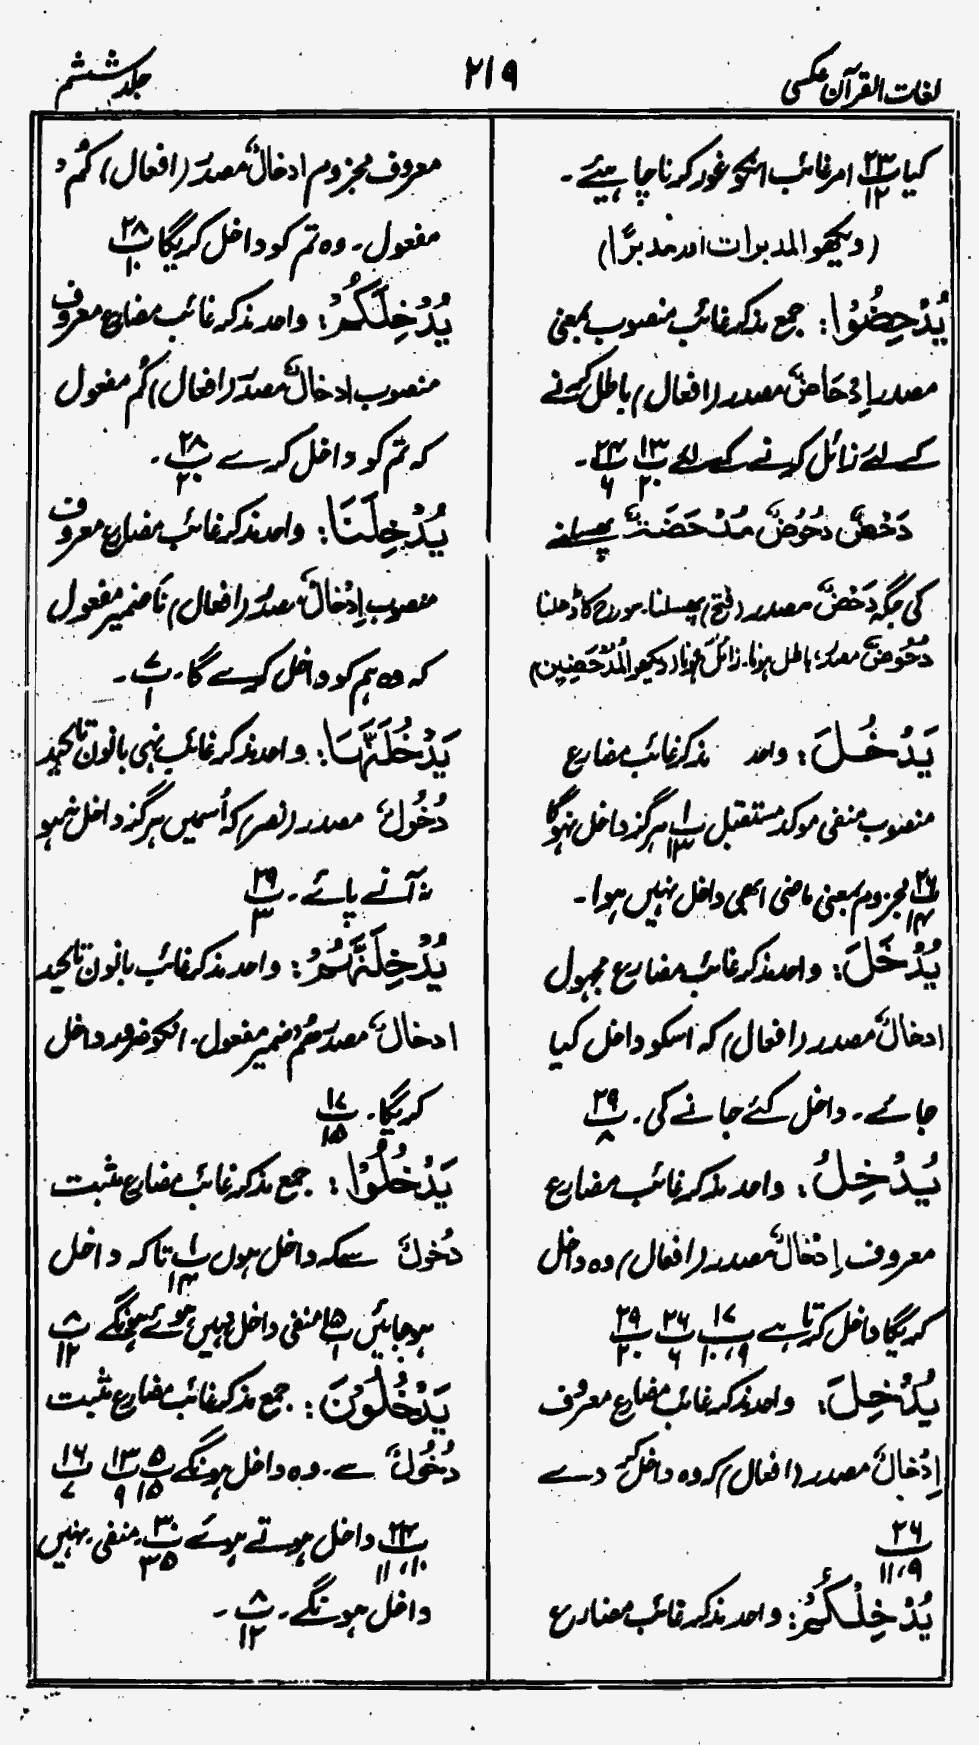 لغات القرآن عکسی
۲۱۹
جلد ششم
کیا پ ۲۳/۱۲ امر غائب انکو غور کرنا چاہیئے۔
(دیکھو المدبرات اور مدبرًا)
یُدْحِضُوْا: جمع مذکر غائب منصوب بمعنی
مصدر اِدْحَاضٌ مصدر (افعال) باطل کرنے
کے لئے زائل کرنے کے لئے ۱۳/۲۰ پ ۲۴/۶ پ۔
دَحْضٌ دُحُوْضٌ مَدْحَضَۃٌ پھسلنے
کی جگہ دَحْضٌ مصدر (فتح) پھسلنا۔ سورج کا ڈھلنا
دُحُوْضٌ مصدر؛ باطل ہونا۔ زائل ہونا (دیکھو المُدْحَضِیْن)
یَدْخُلَ: واحد مذکر غائب مضارع
منصوب منفی موکد مستقبل پ ۱/۱۳ ہرگز داخل نہوگا
پ ۲۶/۱۴ مجزوم بمعنی ماضی ابھی داخل نہیں ہوا۔
یُدْخَلَ: واحد مذکر غائب مضارع مجہول
ادخالٌ مصدر (افعال) کہ اسکو داخل کیا
جائے۔ داخل کئے جانے کی۔ پ ۲۹/۸
یُدْخِلُ: واحد مذکر غائب مضارع
معروف اِدْخَالٌ مصدر (افعال) وہ داخل
کریگا داخل کرتا ہے پ ۱۷/۱۰،۹ پ ۲۶/۶ پ ۲۹/۲۰
یُدْخِلَ: واحد مذکر غائب مضارع معروف
اِدْخَالٌ مصدر (افعال) کہ وہ داخل کر دے
۲۶/۱۱،۹
یُدْخِلْکُمْ: واحد مذکر غائب مضارع
معروف مجزوم ادخالٌ مصدر (افعال) کُم
مفعول۔ وہ تم کو داخل کریگا پ ۲۸/۱۰
یُدْخِلَکُمْ: واحد مذکر غائب مضارع معروف
منصوب ادخالٌ مصدر (افعال) کُم مفعول
کہ تم کو داخل کرے پ ۲۸/۲۰۔
یُدْخِلَنَا: واحد مذکر غائب مضارع معروف
منصوب اِدْخَالٌ مصدر (افعال) نَا ضمیر مفعول
کہ وہ ہم کو داخل کرے گا۔ پ ۷/۱۔
یَدْخُلَنَّہَا: واحد مذکر غائب نہی بانون تاکید
دُخُولٌ مصدر (نصر) کہ اُسمیں ہرگز داخل نہو
نہ آنے پائے۔ پ ۲۹/۳
یُدْخِلَنَّہُمْ: واحد مذکر غائب بانون تاکید
ادخالٌ مصدر ھُمْ ضمیر مفعول۔ انکو ضرور داخل
کریگا۔ پ ۱۷/۱۵
یَدْخُلُوْا: جمع مذکر غائب مضارع مثبت
دُخُولٌ سے کہ داخل ہوں پ ۱/۱۴ تاکہ داخل
ہوجائیں پ ۱۵/۱ منفی داخل نہیں ہوئے ہونگے پ ۸/۱۲
یَدْخُلُوْنَ: جمع مذکر غائب مضارع مثبت
دُخُولٌ سے۔ وہ داخل ہونگے پ ۵/۱۵ پ ۱۳/۹ پ ۱۶/۷
پ ۲۴/۱۱،۱۰ داخل ہوتے ہوئے پ ۳۰/۳۵ منفی۔ نہیں
داخل ہونگے۔ پ ۸/۱۲۔